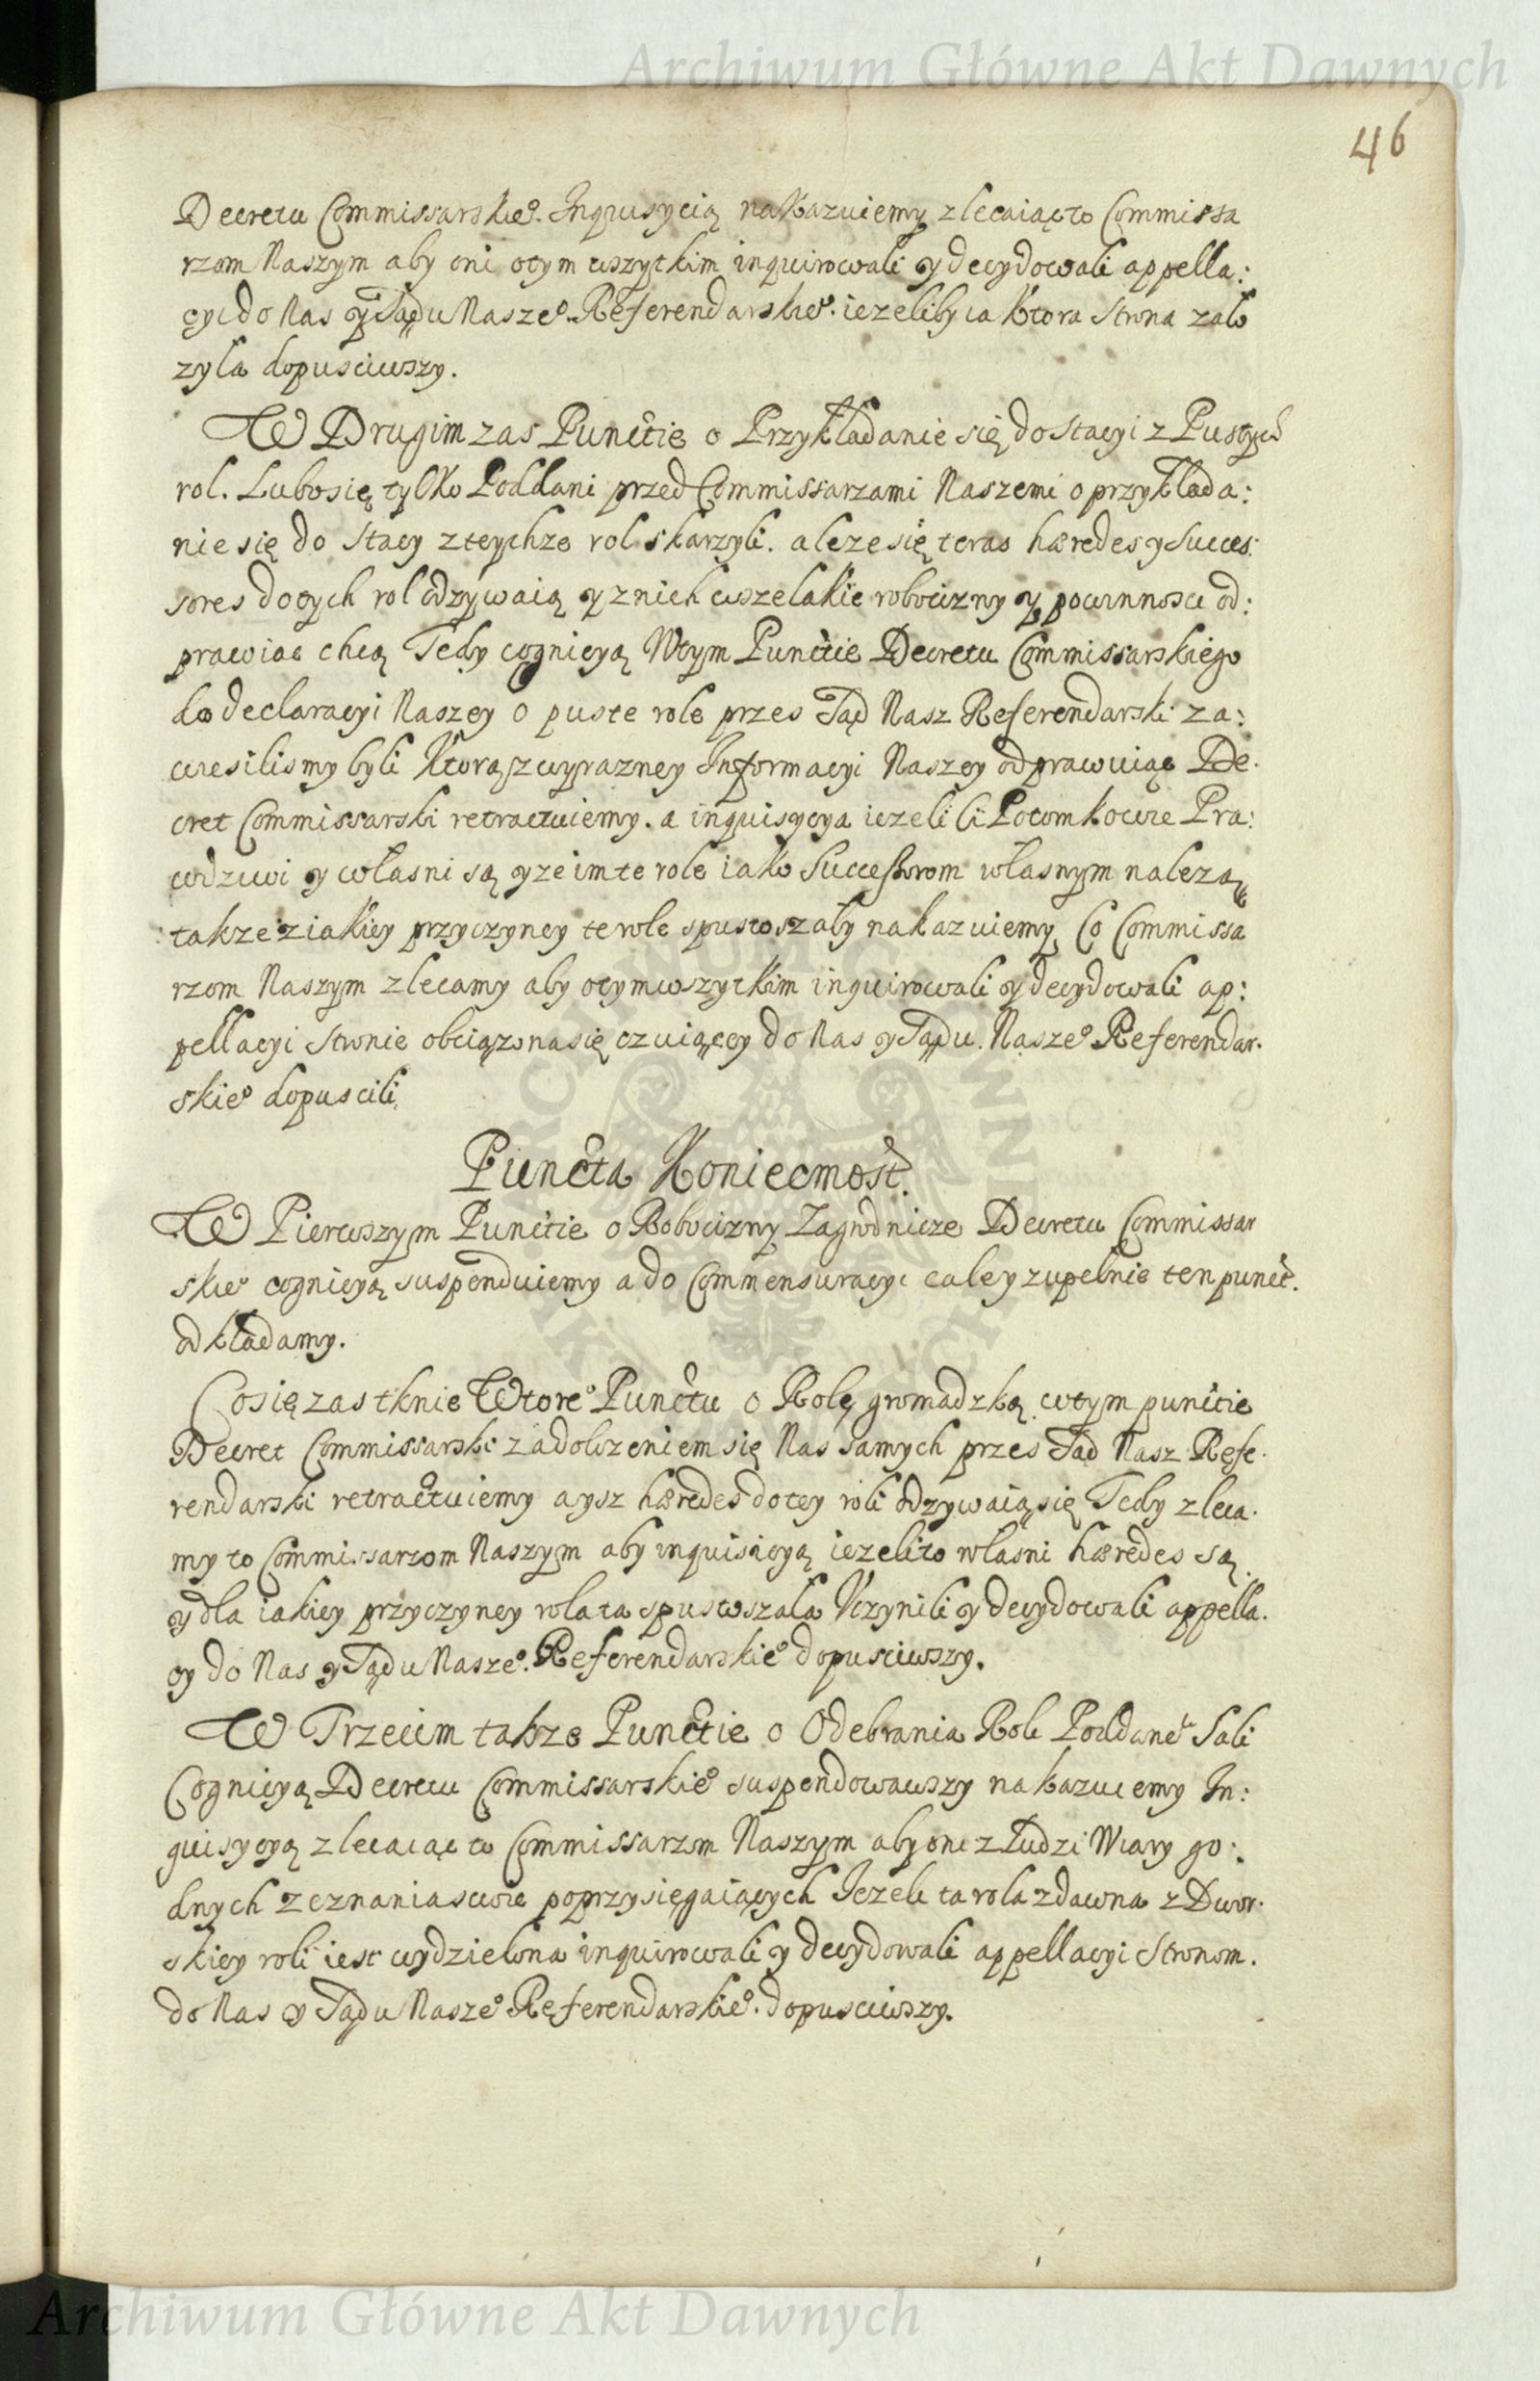 Archiwum Główne Akt Dawnych
46
Decretu Commissarskie⁰. Inquisycią nakazuiemy zlecaiąc to Commissa
rzom Naszym aby oni otym wszytkim inquirowali y decydowali appella:
cyi do Nas y Sądu Nasze⁰ Referendarskie⁰. iezeliby ia ktora strona zalo
zyla dopusciwszy.
W Drugim zas Punctie o Przykładanie się do stacyi z Pustych
rol. Lubosię tylko Poddani przed Commissarzami Naszemi o przykłada:
nie się do stacy zteychze rol skarzyli. aleze się teras hæredes y Succes:
sores do tych rol odzywaią y znich wszelakie robocizny y powinnosci od:
prawiac chcą Tedy cognicyą Wtym Punctie Decretu Commissarskiego
do declaracyi Naszey o puste role przes Sąd Nasz Referendarski za:
wiesilismy byli Ktorą z wyrazney Informacyi Naszey odprawuiąc De.
cret Commissarski retractuiemy. a inquisycya iezeli ci Potomkowie Pra:
wdziwi y własni są y ze im te role iako Successorom własnym nalezą
takze ziakiey przyczyney te role spustoszały nakazuiemy, Co Commissa
rzom Naszym zlecamy aby otym wszytkim inquirowali y decydowali ap:
pellacyi stronie obciązona się czuiącey do Nas y Sądu. Nasze⁰ Referendar.
skie⁰ dopuscili.
Puncta Koniecmost.
W Pierwszym Punctie o Robocizny Zagrodnicze Decretu Commissar
skie⁰ cognicyą suspenduiemy a do Commensuracyi caley zupelnie ten punct.
odkładamy.
Co się zas tknie Wtore⁰ Punctu o Rolę gromadzką wtym punctie
Decret Commissarski zadolozeniem się Nas samych przes Sąd Nasz Refe.
rendarski retractuiemy a ysz hæredes do tey roli odzywaią się Tedy zleca.
my to Commissarzom Naszym aby inquisicyą iezeli to własni hæredes są
y dla iakiey przyczyney rola ta spustoszala Uczynili y decydowali appella.
cy do Nas y Sądu Nasze⁰. Referendarskie⁰ dopusciwszy.
W Trzecim takze Punctie o Odebrania Roli Poddane⁰ Sali
Cognicyą Decretu Commissarskie⁰ suspendowawszy nakazuiemy In:
quisycyą zlecaiąc to Commissarzom Naszym aby oni z Ludzi Wiary go:
dnych zeznania swoie poprzysięgaiących Iezeli ta rola zdawna z Dwor.
skiey roli iest wydzielona inquirowali y decydowali appellacyi stronom.
do Nas y Sądu Nasze⁰ Referendarskie⁰. dopusciwszy.
Archiwum Główne Akt Dawnych